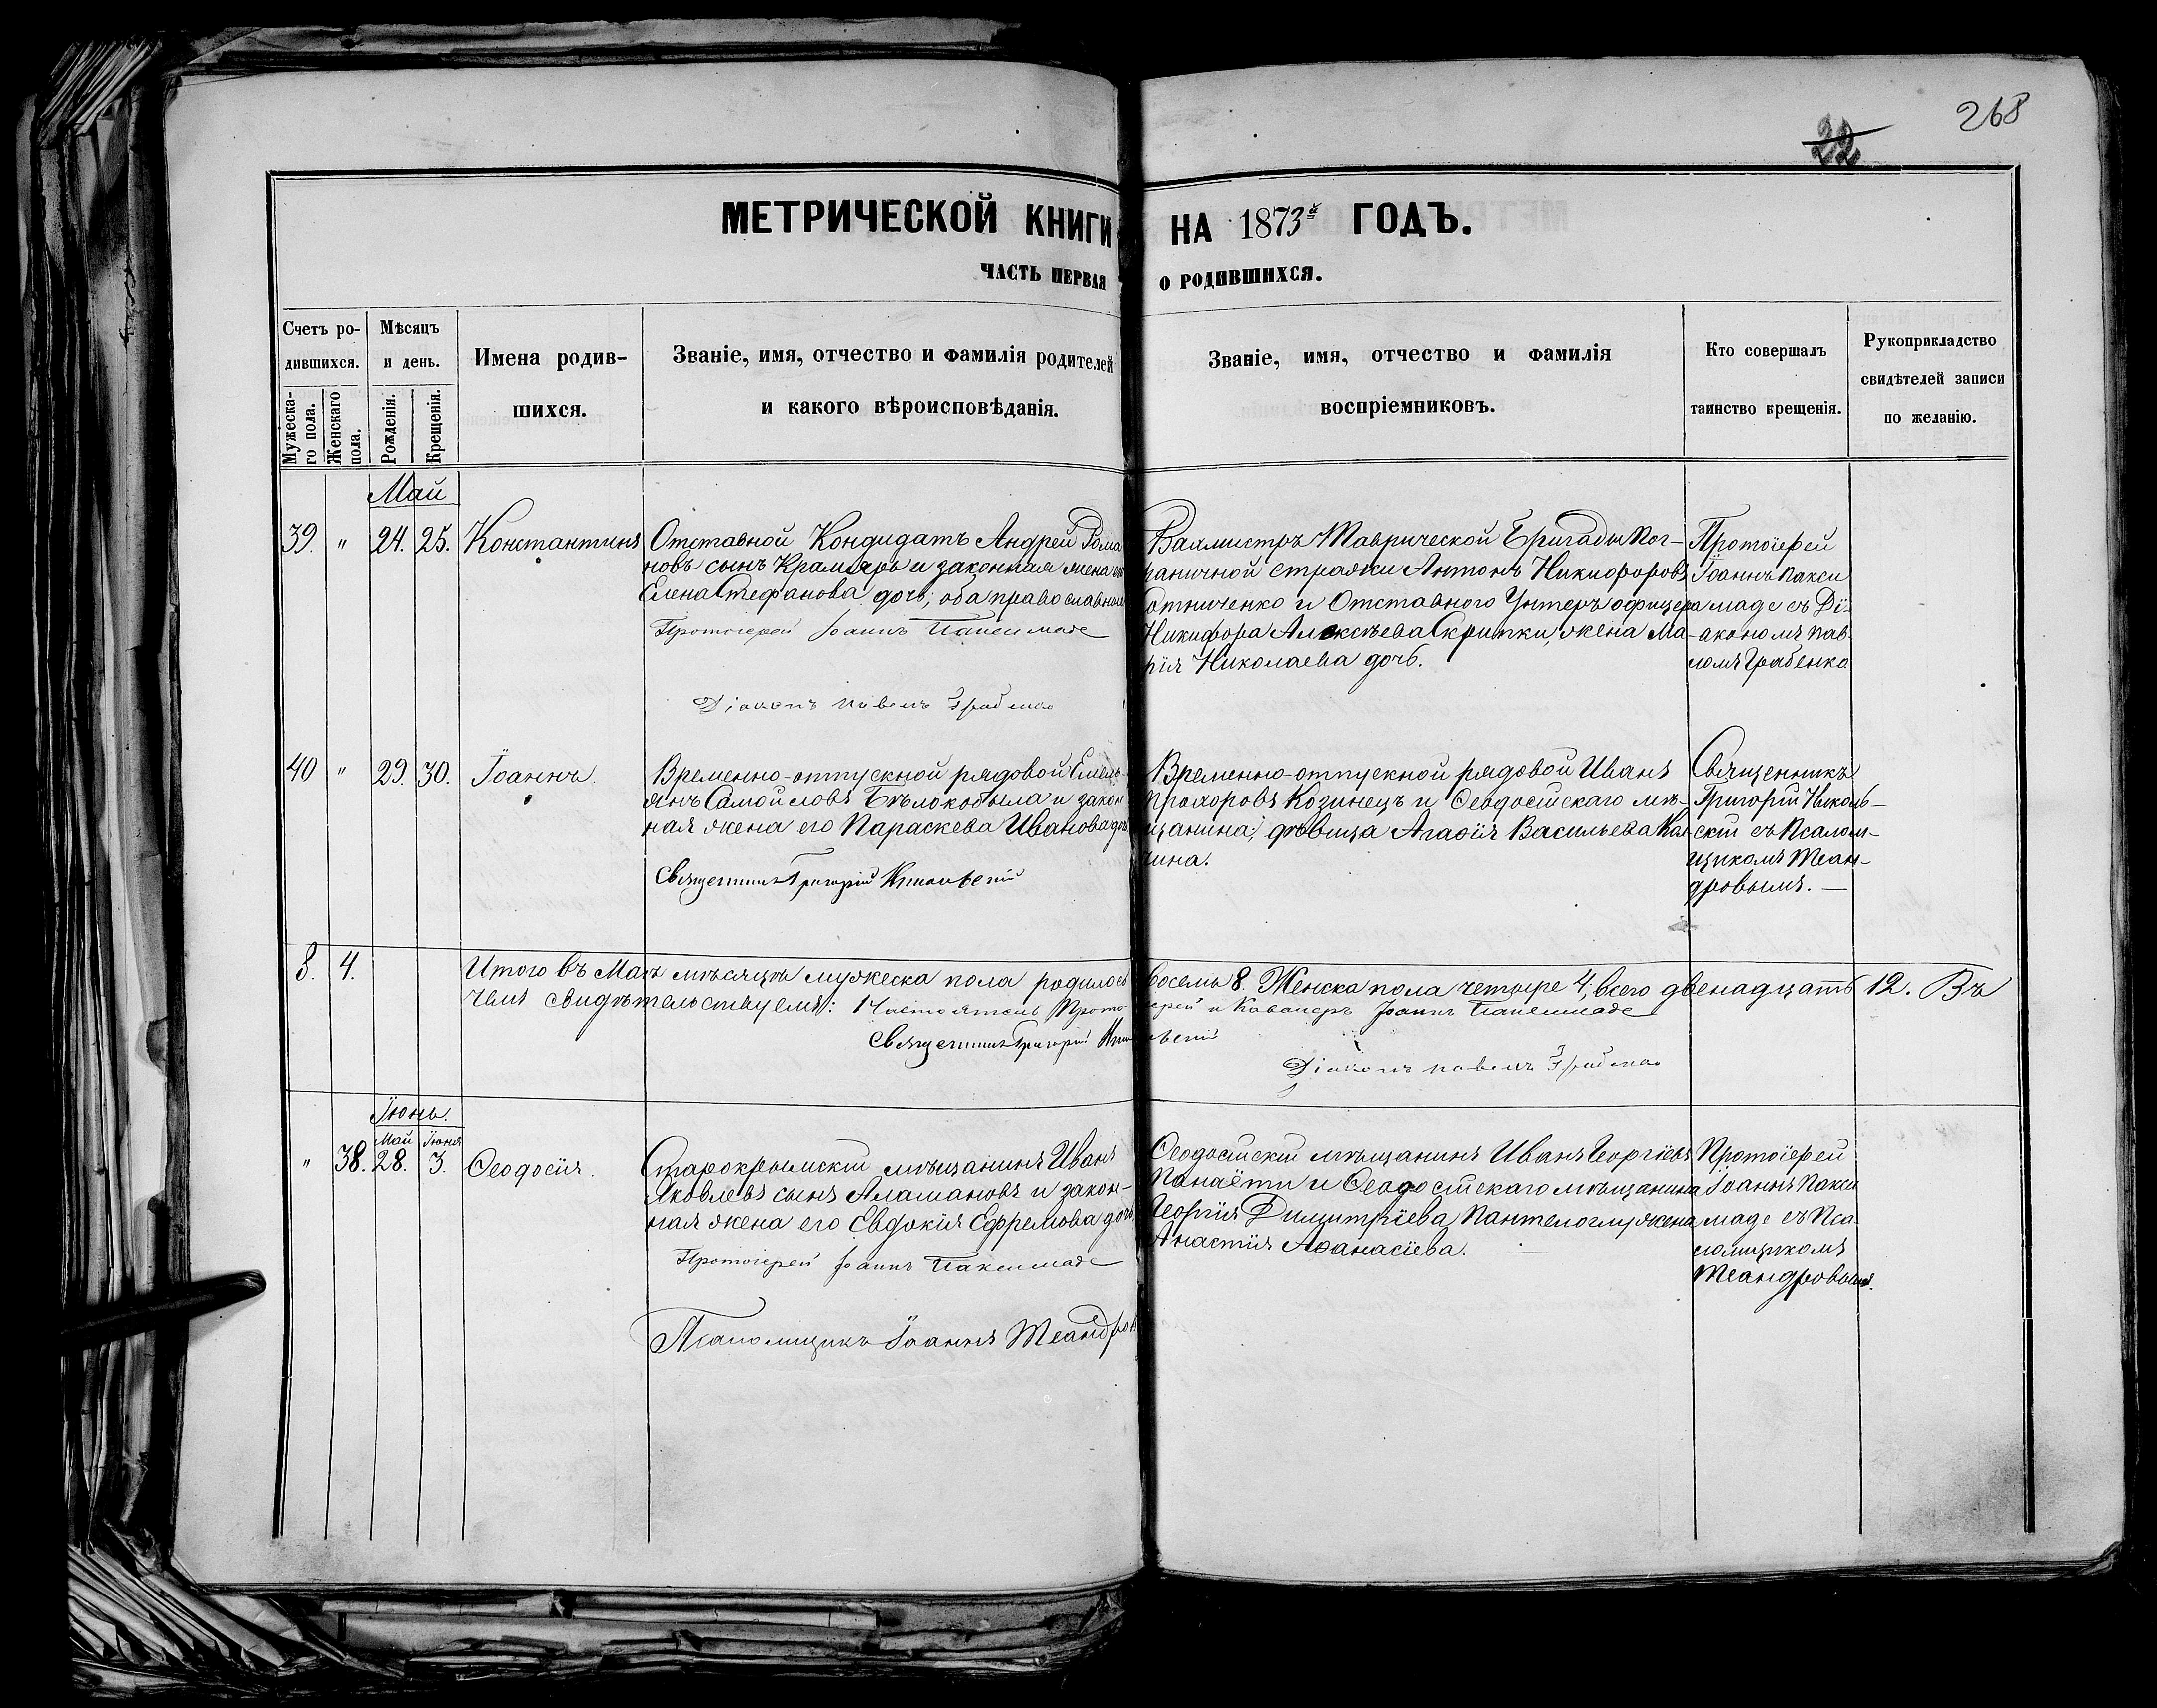 268
22
МЕТРИЧЕСКОЙ КНИГИ НА 1873й ГОДЪ.
ЧАСТЬ ПЕРВАЯ О РОДИВШИХСЯ.
Счетъ ро-
дившихся.
Мужеска-
го пола.
Женскаго
пола.
Мѣсяцъ
и день.
Рожденія.
Крещенія.
Имена родив-
шихся.
Званіе, имя, отчество и фамилія родителей
и какого вѣроисповѣданія.
Званіе, имя, отчество и фамилія
воспріемниковъ.
Кто совершалъ
таинство крещенія.
Рукоприкладство
свидѣтелей записи
по желанію.
Май
39. " 24. 25. Константинъ
Отставной Кондидатъ Андрей Рома
новъ сынъ Крамарь и законная жена его
Елена Стефанова дочь; оба православные
Протоіерей Іоаннъ Паксимаде
Діаконъ Павелъ Грабенко
Вахмистръ Таврической Бригады Пог-
раничной стражи Антонъ Никифоровъ
Сотниченко и Отставного Унтеръ офицера
Никифора Алексѣева Скрипки, жена Ма-
рія Николаева дочь.
Протоіерей
Іоаннъ Пакси
маде съ Ді-
акономъ Пав-
ломъ Грабенко
40 " 29. 30. Іоаннъ.
Временно-отпускной рядовой Емель-
янъ Самойловъ Бѣлокобыла и закон
ная жена его Параскева Иванова дочь
Священникъ Григорій Никольскій
Временно-отпускной рядовой Иванъ
Прохоровъ Козинецъ и Ѳеодосійскаго мѣ-
щанина, дѣвица Агафія Васильева Кал
чина.
Священникъ
Григорій Николь-
скій съ Псалом-
щикомъ Теан-
дровымъ. —
8. 4.
Итого въ Маѣ мѣсяцѣ мужеска пола родилось восемь 8. Женска пола четыре 4, всего двенадцать 12. Въ
чемъ свидѣтельствуемъ: Настоятель Протоіерей и Кавалеръ Іоаннъ Паксимаде
Священникъ Григорій Никольскій
Діаконъ Павелъ Грабенко
Іюнь.
Май Іюня
" 38. 28. 3. Ѳеодосія.
Старокрымскій мѣщанинъ Иванъ
Яковлевъ сынъ Аламановъ и закон-
ная жена его Евдокія Ефремова дочь
Протоіерей Іоаннъ Паксимаде
Псаломщикъ Іоаннъ Теандров
Ѳеодосійскій мѣщанинъ Иванъ Георгіевъ
Панаёти и Ѳеодосійскаго мѣщанина
Георгія Димитріева Пантелоглу жена
Анастія Аѳанасіева. —
Протоіерей
Іоаннъ Пакси
маде съ Пса
ломщикомъ
Теандровымъ.